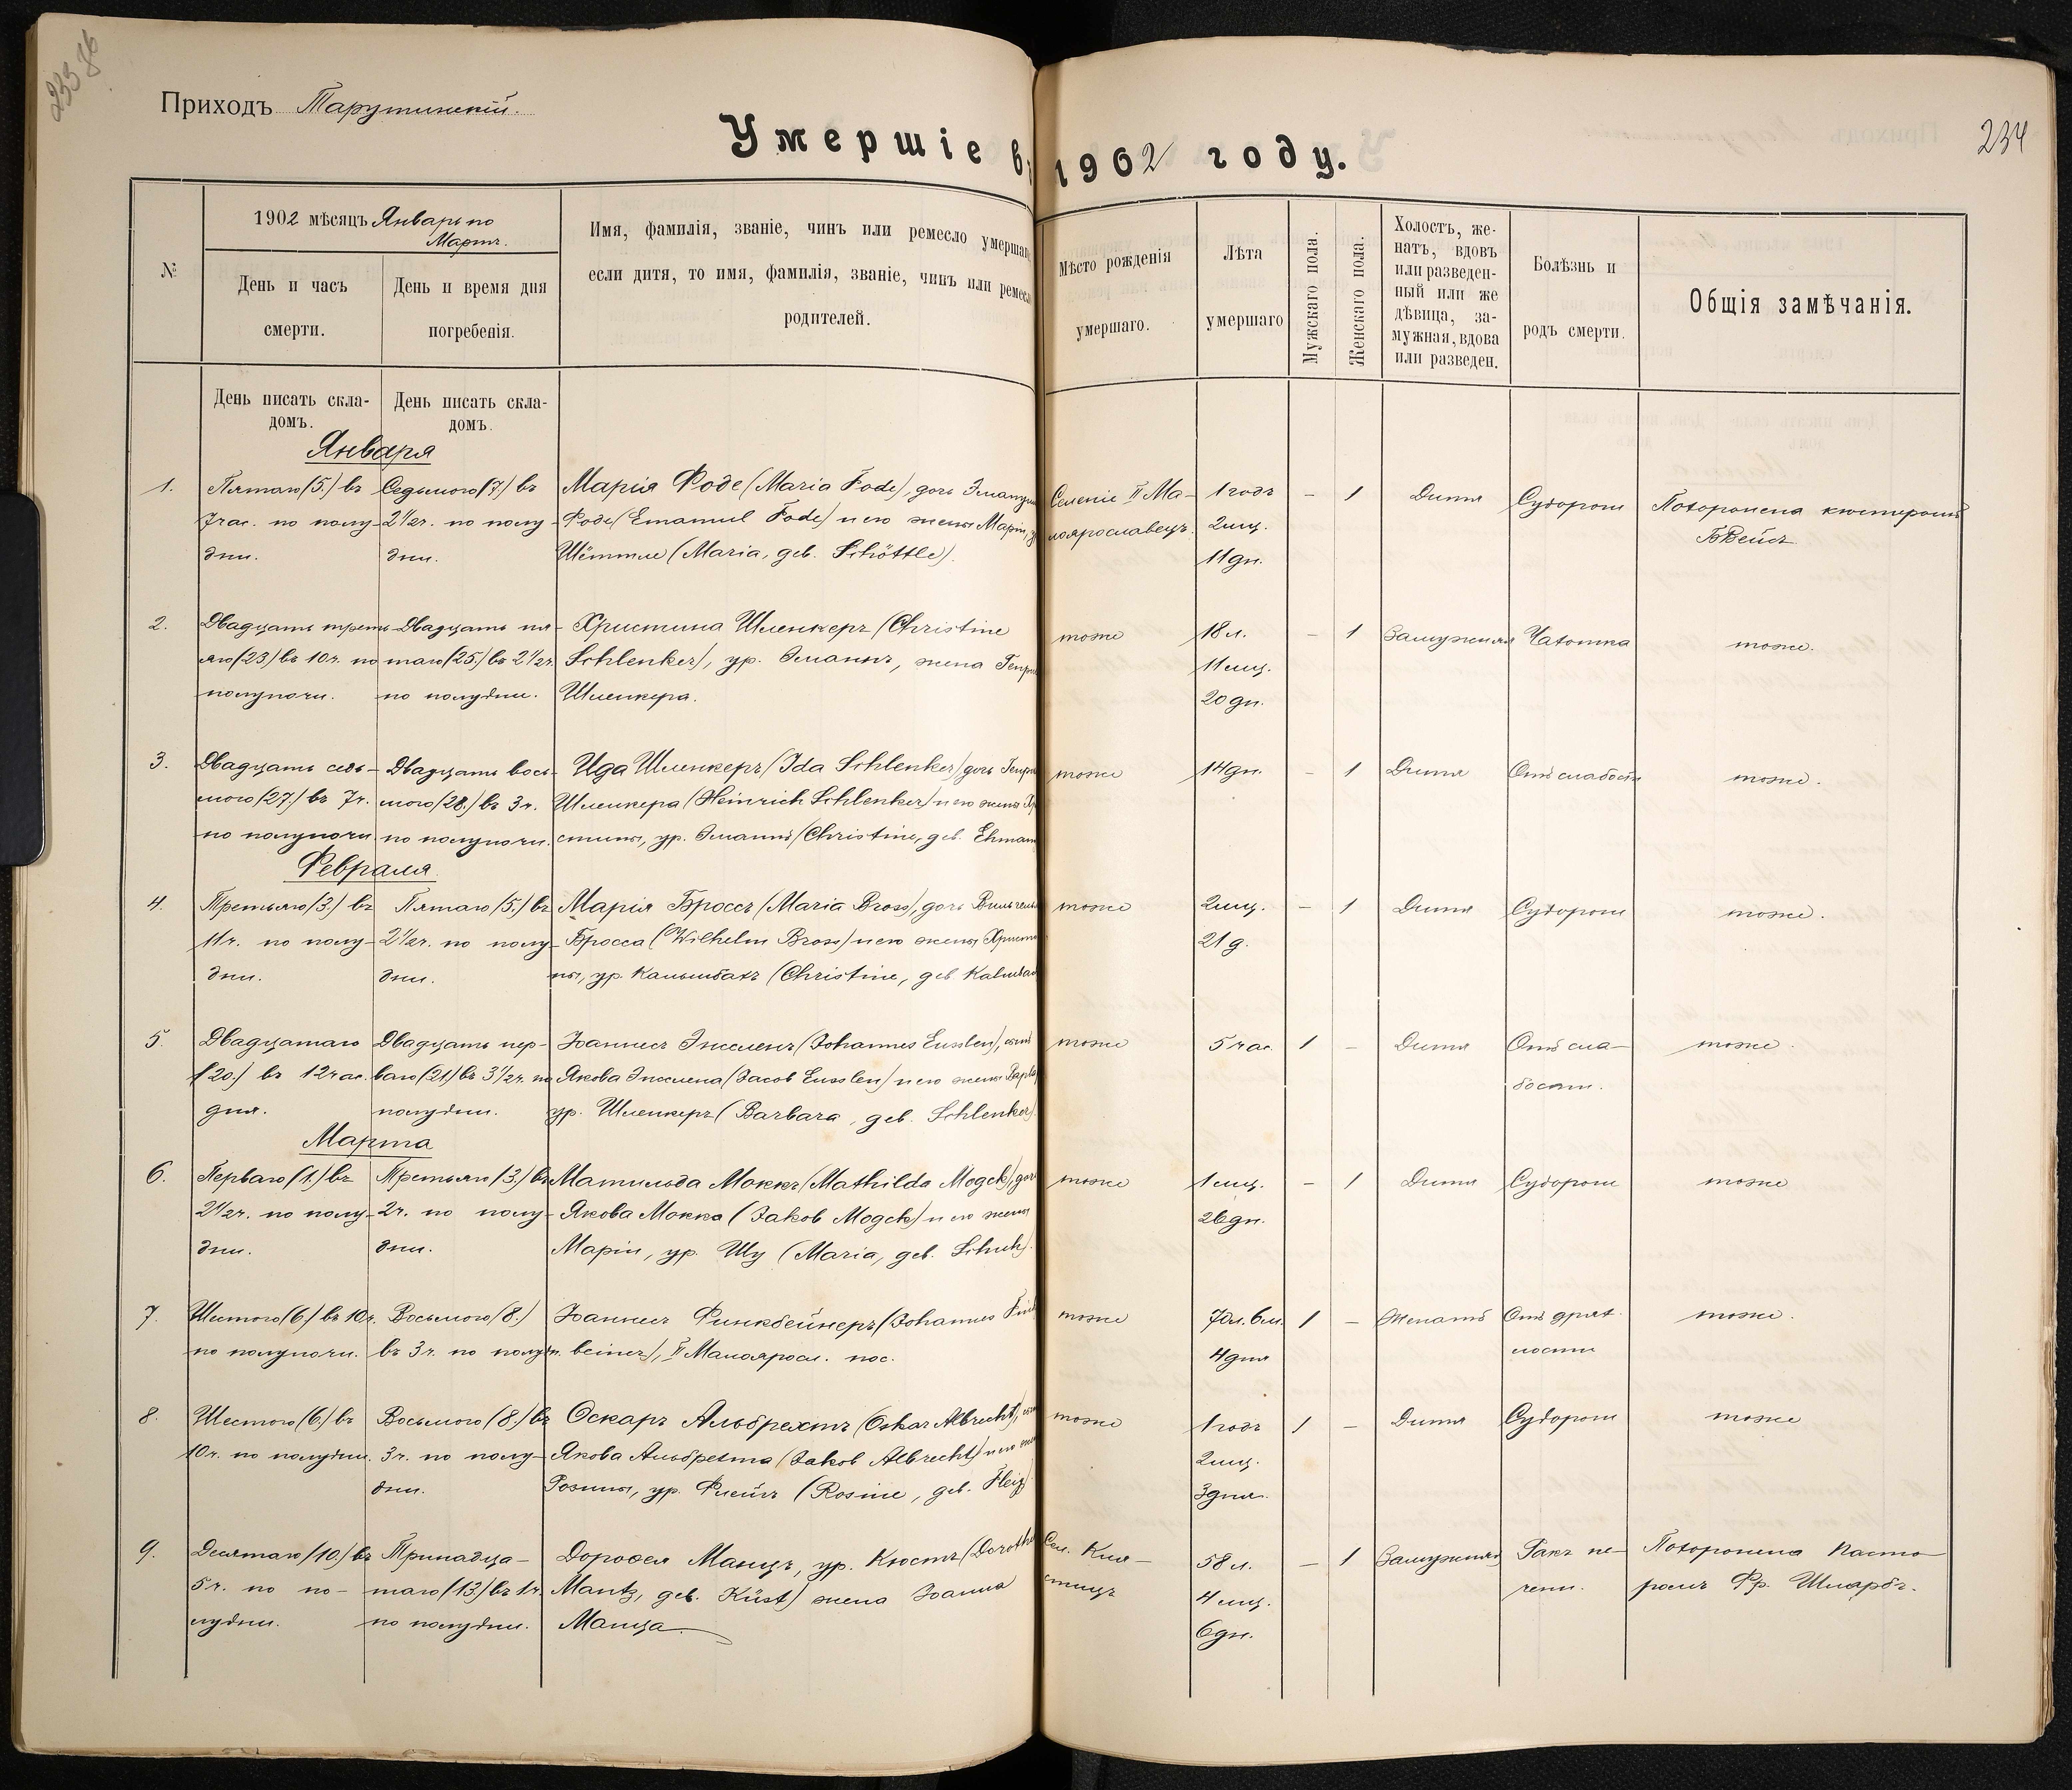 233 об
Приходъ Тарутинскій.
234
Умершіе въ 1902 году.
№
1902 мѣсяцъ Январь по
Мартъ.
День и часъ
смерти.
День и время дня
погребенія.
Имя, фамилія, званіе, чинъ или ремесло умершаго
если дитя, то имя, фамилія, званіе, чинъ или ремесло
родителей.
Мѣсто рожденія
умершаго.
Лѣта
умершаго
Мужскаго пола.
Женскаго пола.
Холостъ, же-
натъ, вдовъ
или разведен-
ный или же
дѣвица, за-
мужная, вдова
или разведен.
Болѣзнь и
родъ смерти.
Общія замѣчанія.
День писать скла-
домъ.
День писать скла-
домъ.
Января
1.
Пятаго (5.) въ
7 час. по полу-
дни.
Седьмого (7.) въ
2 1/2 ч. по полу-
дни.
Марія Фоде (Maria Fode), дочь Эмануи
Фоде (Emanuel Fode) и его жены Маріи, у
Шёттле (Maria, geb. Schöttle).
Селеніе II Ма-
лоярославецъ.
1 годъ
2 мц.
11 дн.
–
1
Дитя
Судороги
Похоронена кюстеромъ
Б. Вейсъ
2.
Двадцать треть-
яго (23.) въ 10 ч. по
полуночи.
Двадцать пя-
таго (25.) въ 2 1/2 ч.
по полудни.
Христина Шленкеръ (Christine
Schlenker), ур. Эманнъ, жена Генри
Шленкера.
тоже
18 л.
11 мц.
20 дн.
–
1
Замужняя
Чахотка
тоже.
3.
Двадцать седь-
мого (27.) въ 7 ч.
по полуночи
Двадцать вось-
мого (28.) въ 3 ч.
по полуночи.
Ида Шленкеръ (Ida Schlenker) дочь Генри
Шленкера (Heinrich Schlenker) и его жены Хри
стины, ур. Эманнъ (Christine, geb. Ehmann
тоже
14 дн.
–
1
Дитя
Отъ слабости
тоже.
Февраля.
4.
Третьяго (3.) въ
11 ч. по полу-
дни.
Пятаго (5.) въ
2 1/2 ч. по полу-
дни.
Марія Броссъ (Maria Bross), дочь Вильгель
Бросса (Wilhelm Bross) и его жены Христи
ны, ур. Кальмбахъ (Christine, geb Kalmbach
тоже
2 мц.
21 д.
–
1
Дитя
Судороги
тоже.
5.
Двадцатаго
(20.) въ 12 час.
дня.
Двадцать пер-
ваго (21.) въ 3 1/2 ч. по
полудни.
Іоаннесъ Энсленъ (Johannes Ensslen), сынъ
Якова Энслена (Jacob Ensslen) и его жены Варва
ур. Шленкеръ (Barbara, geb. Schlenker)
тоже
5 час.
1
–
Дитя
Отъ сла-
бости.
тоже.
Марта
6.
Перваго (1.) въ
2 1/2 ч. по полу-
дни.
Третьяго (3.) въ
2 ч. по полу-
дни.
Матильда Моккъ (Mathilda Mogck), доч
Якова Мокка (Jakob Mogck) и его жены
Маріи, ур. Шу (Maria, geb. Schuh).
тоже
1 мц.
26 дн.
–
1
Дитя
Судороги
тоже
7.
Шестого (6.) въ 10 ч.
по полуночи.
Восьмого (8.)
въ 3 ч. по полудн.
Іоаннесъ Финкбейнеръ (Johannes Fink
beiner), II Малояросл. пос.
тоже
70 л. 6 м.
4 дня
1
–
Женатъ
Отъ дрях-
лости
тоже.
8.
Шестого (6.) въ
10 ч. по полудни.
Восьмого (8.) въ
3 ч. по полу-
дни.
Оскаръ Альбрехтъ (Oskar Albrecht), сын
Якова Альбрехта (Jakob Albrecht) и его жен
Розины, ур. Флейгъ (Rosine, geb. Fleig)
тоже
1 годъ
2 мц.
3 дня.
1
–
Дитя
Судороги
тоже
9.
Десятаго (10.) въ
5 ч. по по-
лудни.
Тринадца-
таго (13.) въ 1 ч.
по полудни.
Доротея Манцъ, ур. Кюстъ (Dorothe
Mantz, geb. Küst) жена Іоанна
Манца
Сел. Кля-
стицъ
58 л.
4 мц.
6 дн.
–
1
Замужняя
Ракъ пе-
чени.
Похоронена Пасто-
ромъ Фр. Шлярбъ.